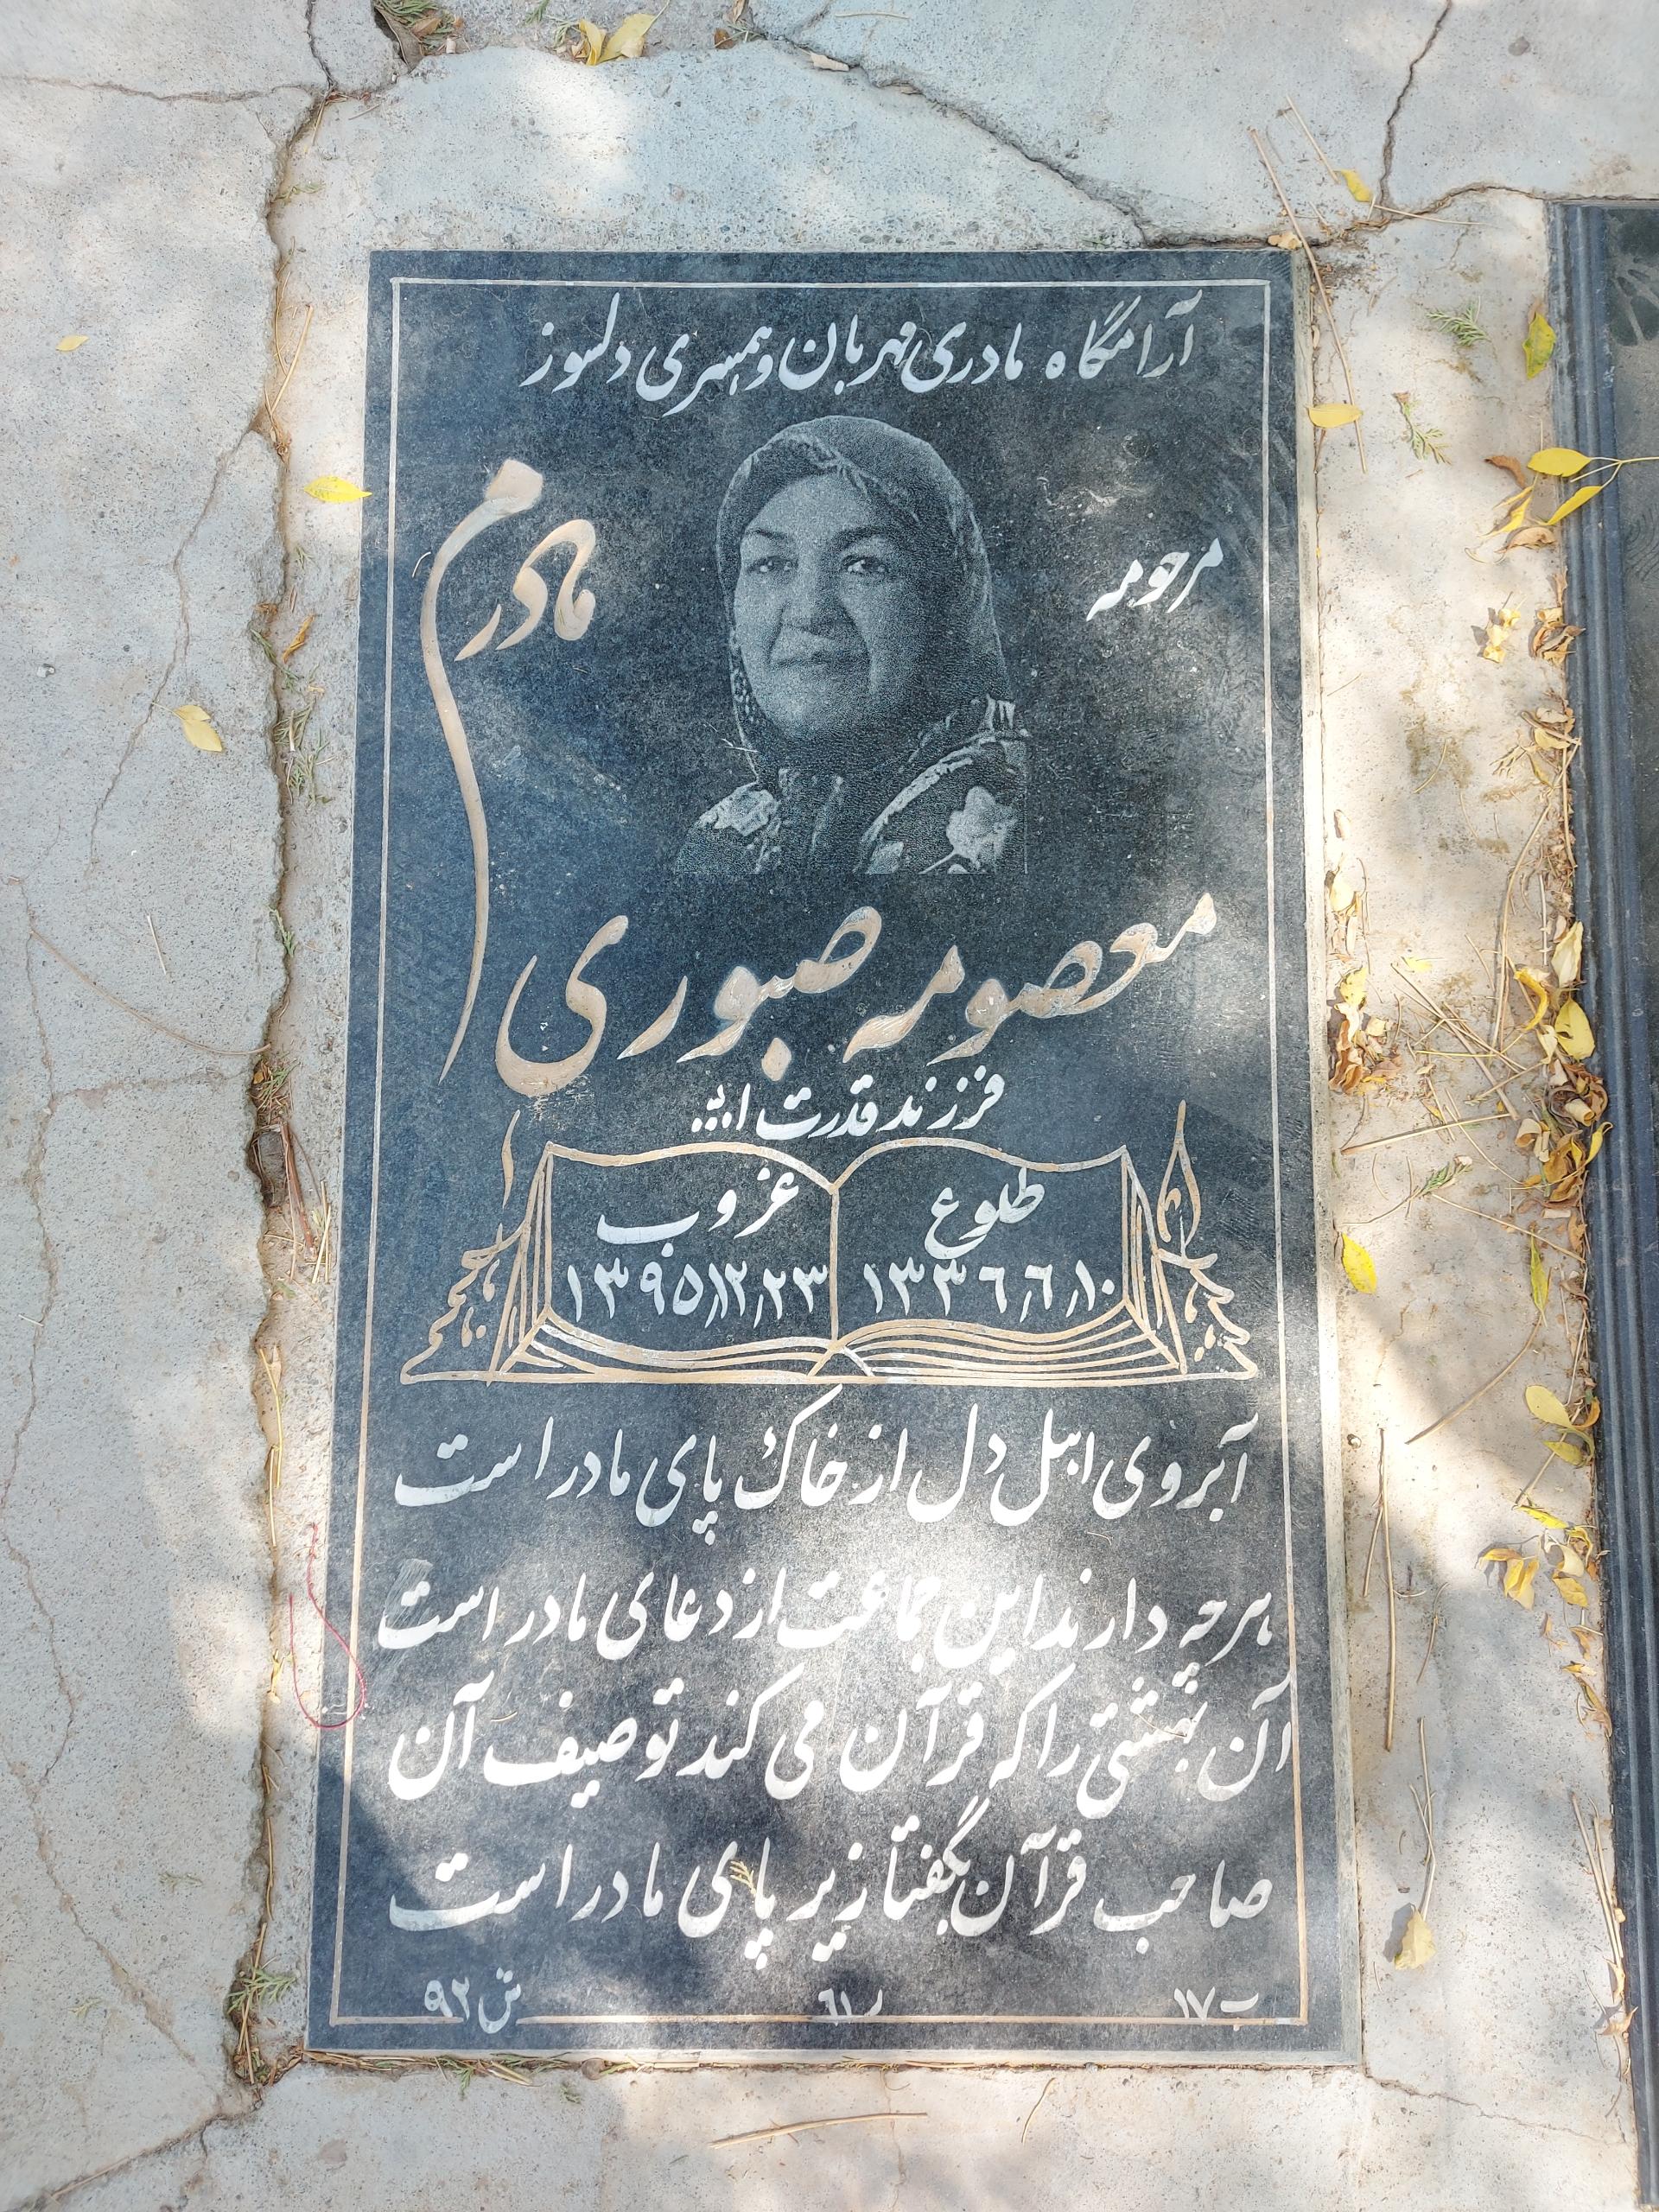 آرامگاه مادری مهربان و همسری دلسوز
مرحومه
مادرم
معصومه صبوری
فرزند قدرت ا...
طلوع
۱۳۳۶٫۶٫۱۰
غروب
۱۳۹۵٫۱۲٫۲۳
آبروی اهل دل از خاک پای مادر است
هرچه دارند این جماعت از دعای مادر است
آن بهشتی را که قرآن می کند توصیف آن
صاحب قرآن بگفتا زیر پای مادر است
ب ۱۷
ر ۶۱
ش ۹۲